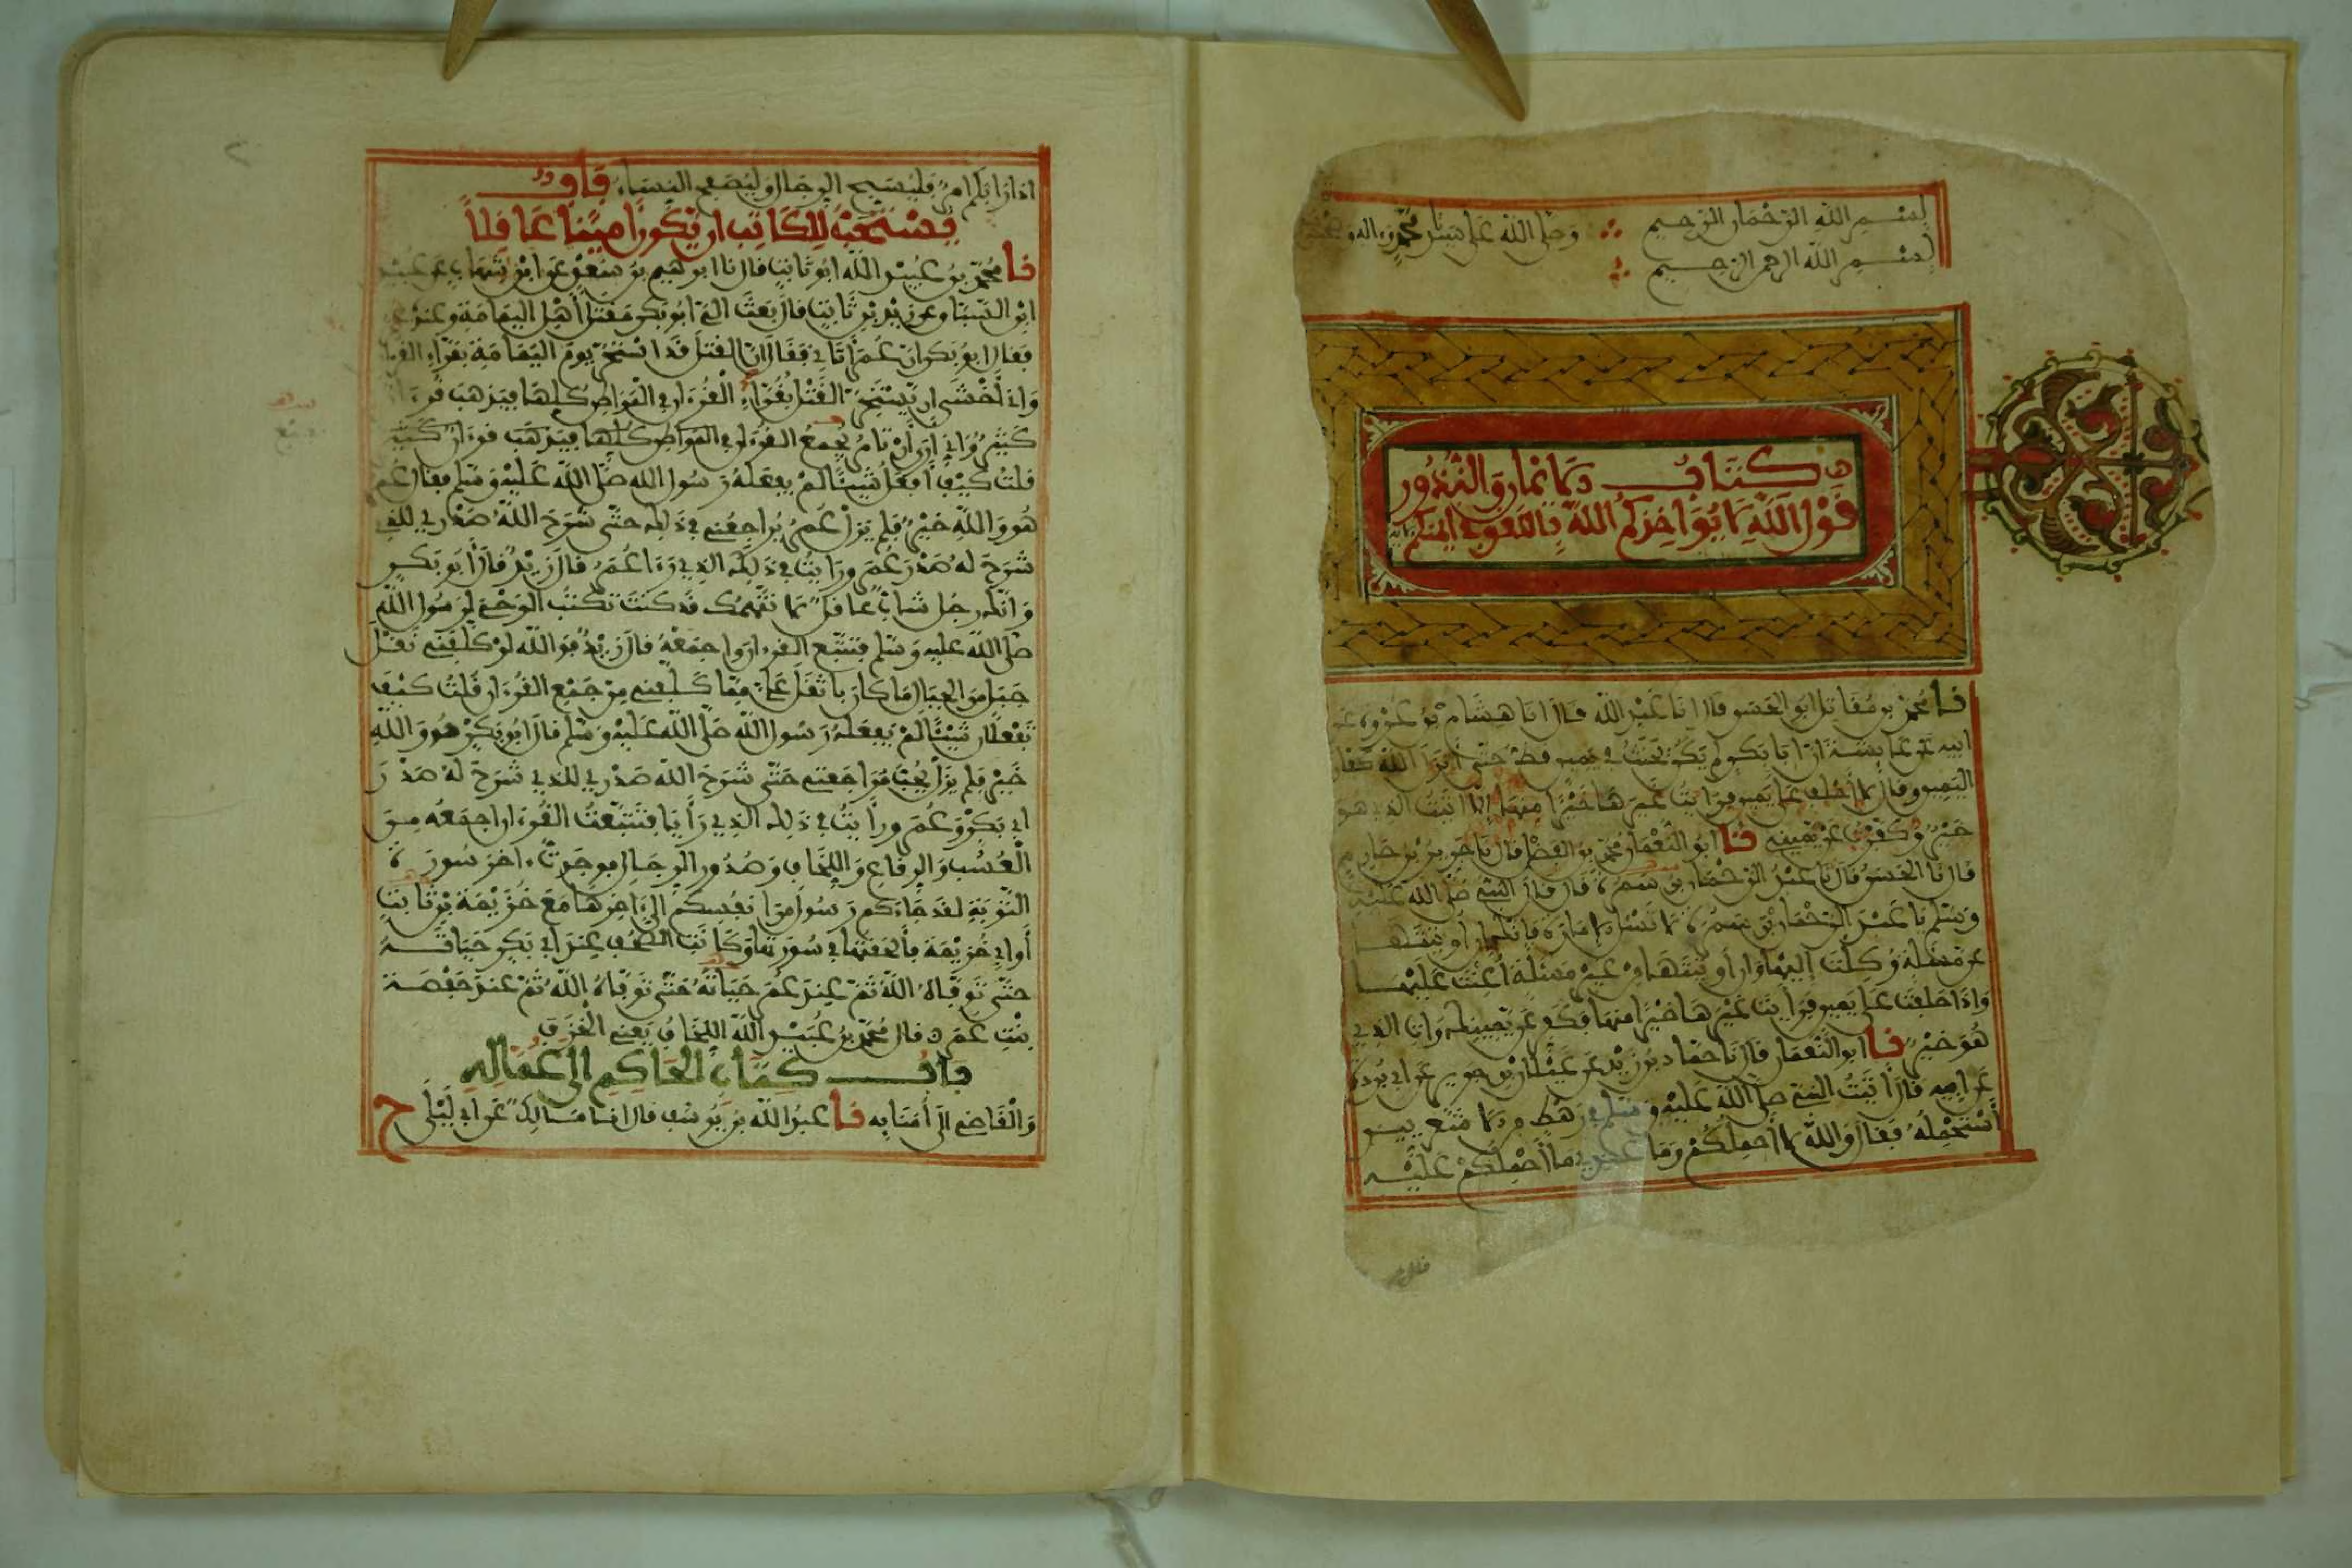 بسم الله الرحمان الرحيم وصلى الله على سيدنا محمد وءاله وصحبه
بسم الله الرحمن الرحيم
كتاب الايمان والنذور
قول الله لا يؤاخذكم الله باللغو في ايمنكم الاية
نا محمد بن مقاتل ابو الحسن قال انا عبد الله قال انا هشام بن عروة عن
ابيه عن عايشة ان ابا بكر لم يكن يحنث في يمين قط حتى أنزل الله كفارة
اليمين وقال لا أحلف على يمين فرايت غيرها خيرا منها الا اتيت الذي هو
خير وكفرت عن يميني نا ابو النعمان محمد بن الفضل قال نا جرير بن حازم
قال نا الحسن قال نا عبد الرحمان بن سمرة قال قال النبي صلى الله عليه
وسلم يا عبد الرحمان بن سمرة لا تسئل الامارة فإنك إن أوتيتها
عن مسئلة وكلت إليها وإن أوتيتها من غير مسئلة أعنت عليها
وإذا حلفت على يمين فرأيت غيرها خيرا منها فكفر عن يمينك وات الذي
هو خير نا ابو النعمان قال نا حماد بن زيد عن غيلان بن جرير عن ابي بردة
عن ابيه قال أتيت النبي صلى الله عليه وسلم في رهط من الاشعريين
أستحمله فقال والله لا أحملكم وما عندي ما أحملكم عليه
اذا رابكم امر فليسبح الرجال وليصفح النساء باب
يستحب للكاتب ان يكون امينا عاقلا
نا محمد بن عبيد الله ابو ثابت قال نا ابرهيم بن سعد عن ابن شهاب عن عبيد
ابن السباق عن زيد بن ثابت قال بعث الي ابو بكر مقتل أهل اليمامة وعنده عمر
فقال ابو بكر ان عمر أتاني فقال ان القتل قد استحر يوم اليمامة بقراء القرءان
واني أخشى ان يستحر القتل بقراء القرءان في المواطن كلها فيذهب قرءان
كثير واني أرى أن تامر بجمع القرءان
قلت كيف أفعل شيئا لم يفعله رسول الله صلى الله عليه وسلم فقال عمر
هو والله خير فلم يزل عمر يراجعني في ذلك حتى شرح الله صدري للذي
شرح له صدر عمر ورايت في ذلك الذي رءا عمر قال زيد قال أبو بكر
وانك رجل شاب عاقل لا نتهمك قد كنت تكتب الوحي لرسول الله
صلى الله عليه وسلم فتتبع القرءان واجمعه قال زيد فوالله لو كلفني نقل
جبل من الجبال ما كان باثقل علي مما كلفني من جمع القرءان قلت كيف
تفعلان شيئا لم يفعله رسول الله صلى الله عليه وسلم قال ابو بكر هو والله
خير فلم يزل يحث مراجعتي حتى شرح الله صدري للذي شرح له صدر
ابي بكر وعمر ورأيت في ذلك الذي رأيا فتتبعت القرءان اجمعه من
العسب والرقاع واللخاف وصدور الرجال فوجدت ءاخر سورة
التوبة لقد جاءكم رسول من انفسكم الى ءاخرها مع خزيمة بن ثابت
أو ابي خزيمة فألحقتها في سورتها وكانت الصحف عند ابي بكر حياته
حتى توفاه الله ثم عند عمر حياته حتى توفاه الله ثم عند حفصة
بنت عمر قال محمد بن عبيد الله اللخاف يعني الخزف
باب كتاب الحاكم الى عماله
والقاضي الى أمنايه نا عبد الله بن يوسف قال انا مالك عن ابي ليلى ح